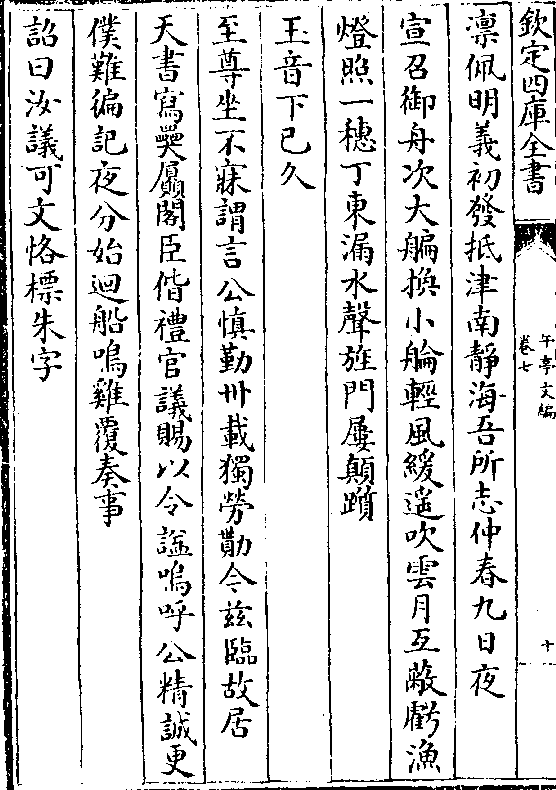 欽定四庫全書
午亭文編
卷七
十
凛佩明義初發抵津南靜海吾所志仲春九日夜
宣召御舟次大艑換小艙輕風緩遥吹雲月互蔽虧漁
燈照一穗丁東漏水聲旌門屢顛躓
玉音下已久
至尊坐不寐謂言公慎勤卅載獨勞勩今兹臨故居
天書寫奰屭閣臣偕禮官議賜以令諡嗚呼公精誠更
僕難徧記夜分始迴船嗚雞覆奏事
詔曰汝議可文恪標朱字